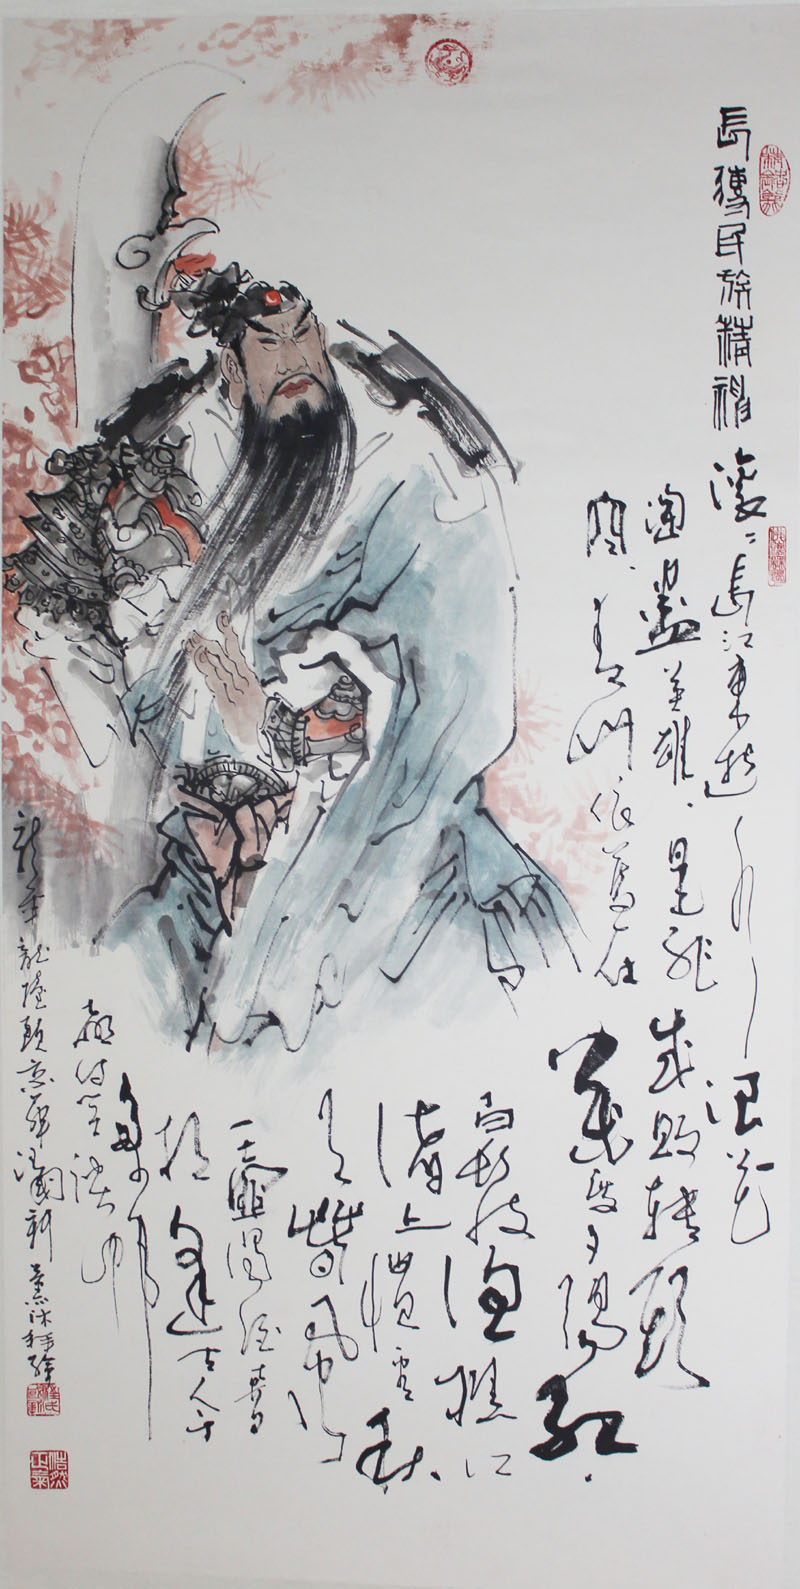 長 民族精神 滚〻長江東逝水 浪花
淘盡英雄 是非成敗轉頭
空 青山依舊在 幾度夕陽紅
白髮漁樵江
渚上 慣看秋
月春风
一壺濁酒喜
相逢 古今
多少事
都付笑談中
龍年龍抬頭京華汪國新薰沐拜繪
浩然正氣